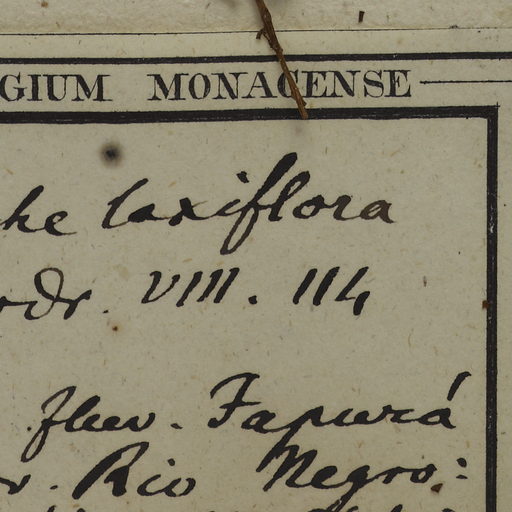 GIUM MONACENSE
he laxiflora
odr. VIII. 114
fluv. Japurá
Rio Negro: